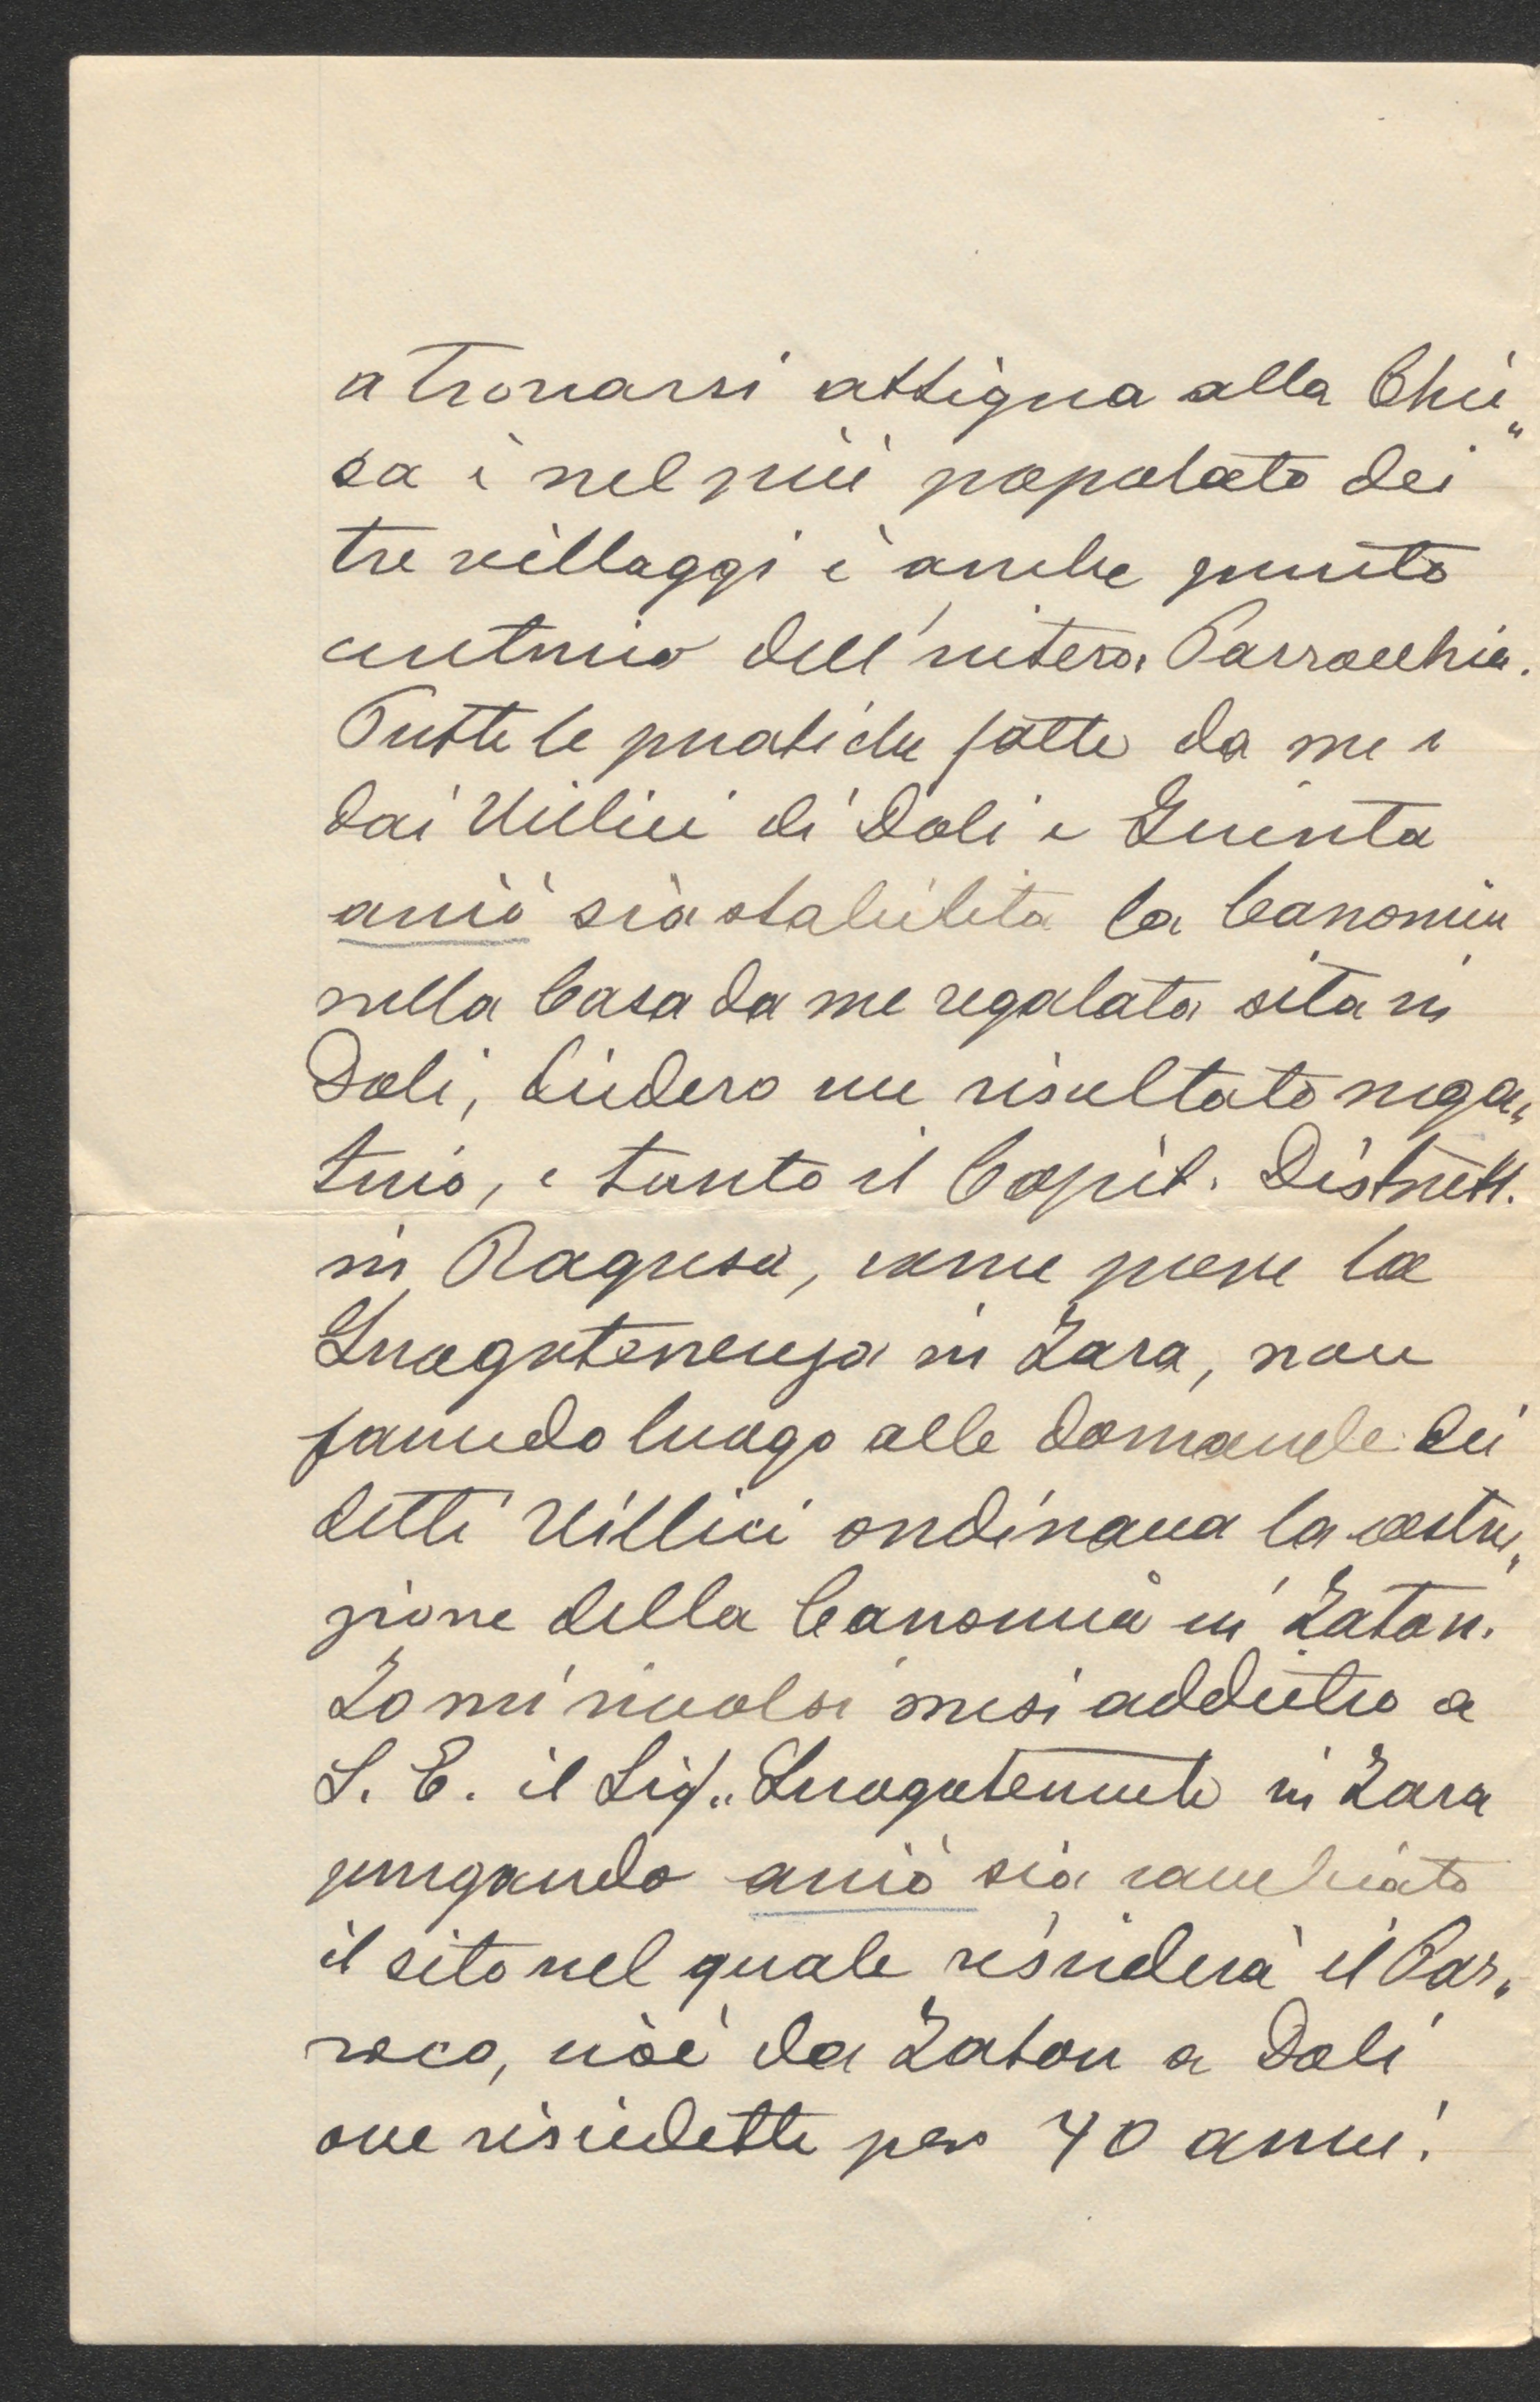 a trovarsi attigua alla Chie„
sa è nel più popolato dei
tre villaggi è anche punto
centrico dell'intera Parrocchia.
Tutte le pratiche fatte da me e
dai Villici di Doli e
acciò sia stabilita la Canonica
nella Casa da me regalata sita in
Doli, diedero un risultato nega„
tivo, e tanto il Capit. Distrett.
in Ragusa, come pure la
Luogotenenza in Zara, non
facendo luogo alle domande dei
detti Villici ordinava la costru„
zione della Canonica in Zaton.
Io mi rivolsi mesi addietro a
S. E. il Sig.. Luogotenente in Zara
pregando acciò sia cambiato
il sito nel quale risiederà il Par„
roco, cioè da Zaton a Doli
ove risiedette per 40 anni.